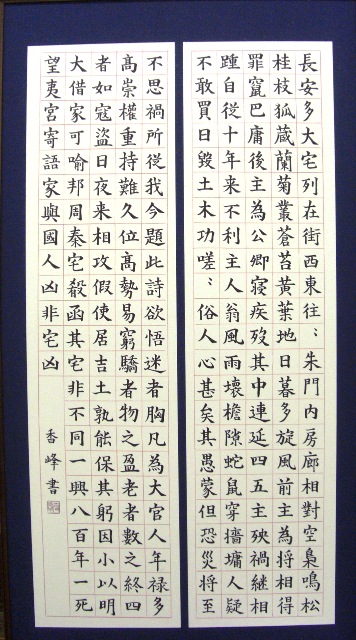 長安多大宅列在街西東往〻朱門内房廊相對空梟鳴松
桂枝狐蔵蘭菊叢蒼苔黄葉地日暮多旋風前主為将相得
罪竄巴庸後主為公卿寝疾歿其中連延四五主殃禍継相
踵自従十年来不利主人翁風雨壊檐隙蛇鼠穿墻墉人疑
不敢買日毀土木功嗟〻俗人心甚矣其愚蒙但恐災将至
不思禍所従我今題此詩欲悟迷者胸凡為大官人年禄多
髙崇權重持難久位髙勢易窮驕者物之盈老者數之終四
者如寇盜日夜来相攻假使居吉土孰能保其躬因小以明
大借家可喻邦周秦宅殽函其宅非不同一興八百年一死
望夷宮寄語家與國人凶非宅凶
香峰書